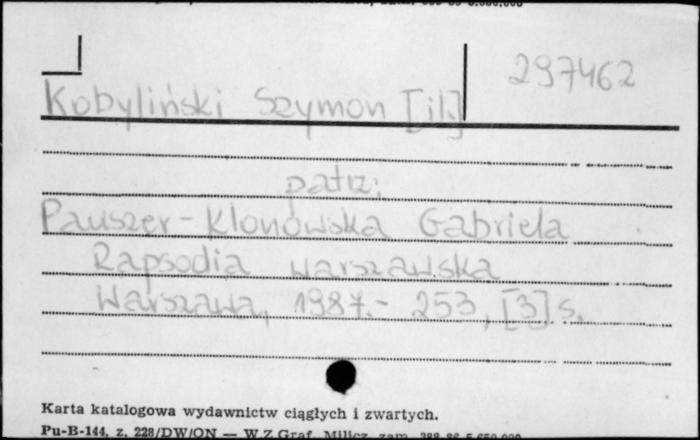 297462
Kobyliński Szymon [il.]
patrz:
Pauszer-Klonowska Gabriela
Rapsodia warszawska
Warszawa, 1987.- 253, [3] s.
Karta katalogowa wydawnictw ciągłych i zwartych.
Pu-B-144, z. 228/DW/ON — W.Z.Graf. Milicz, zam.